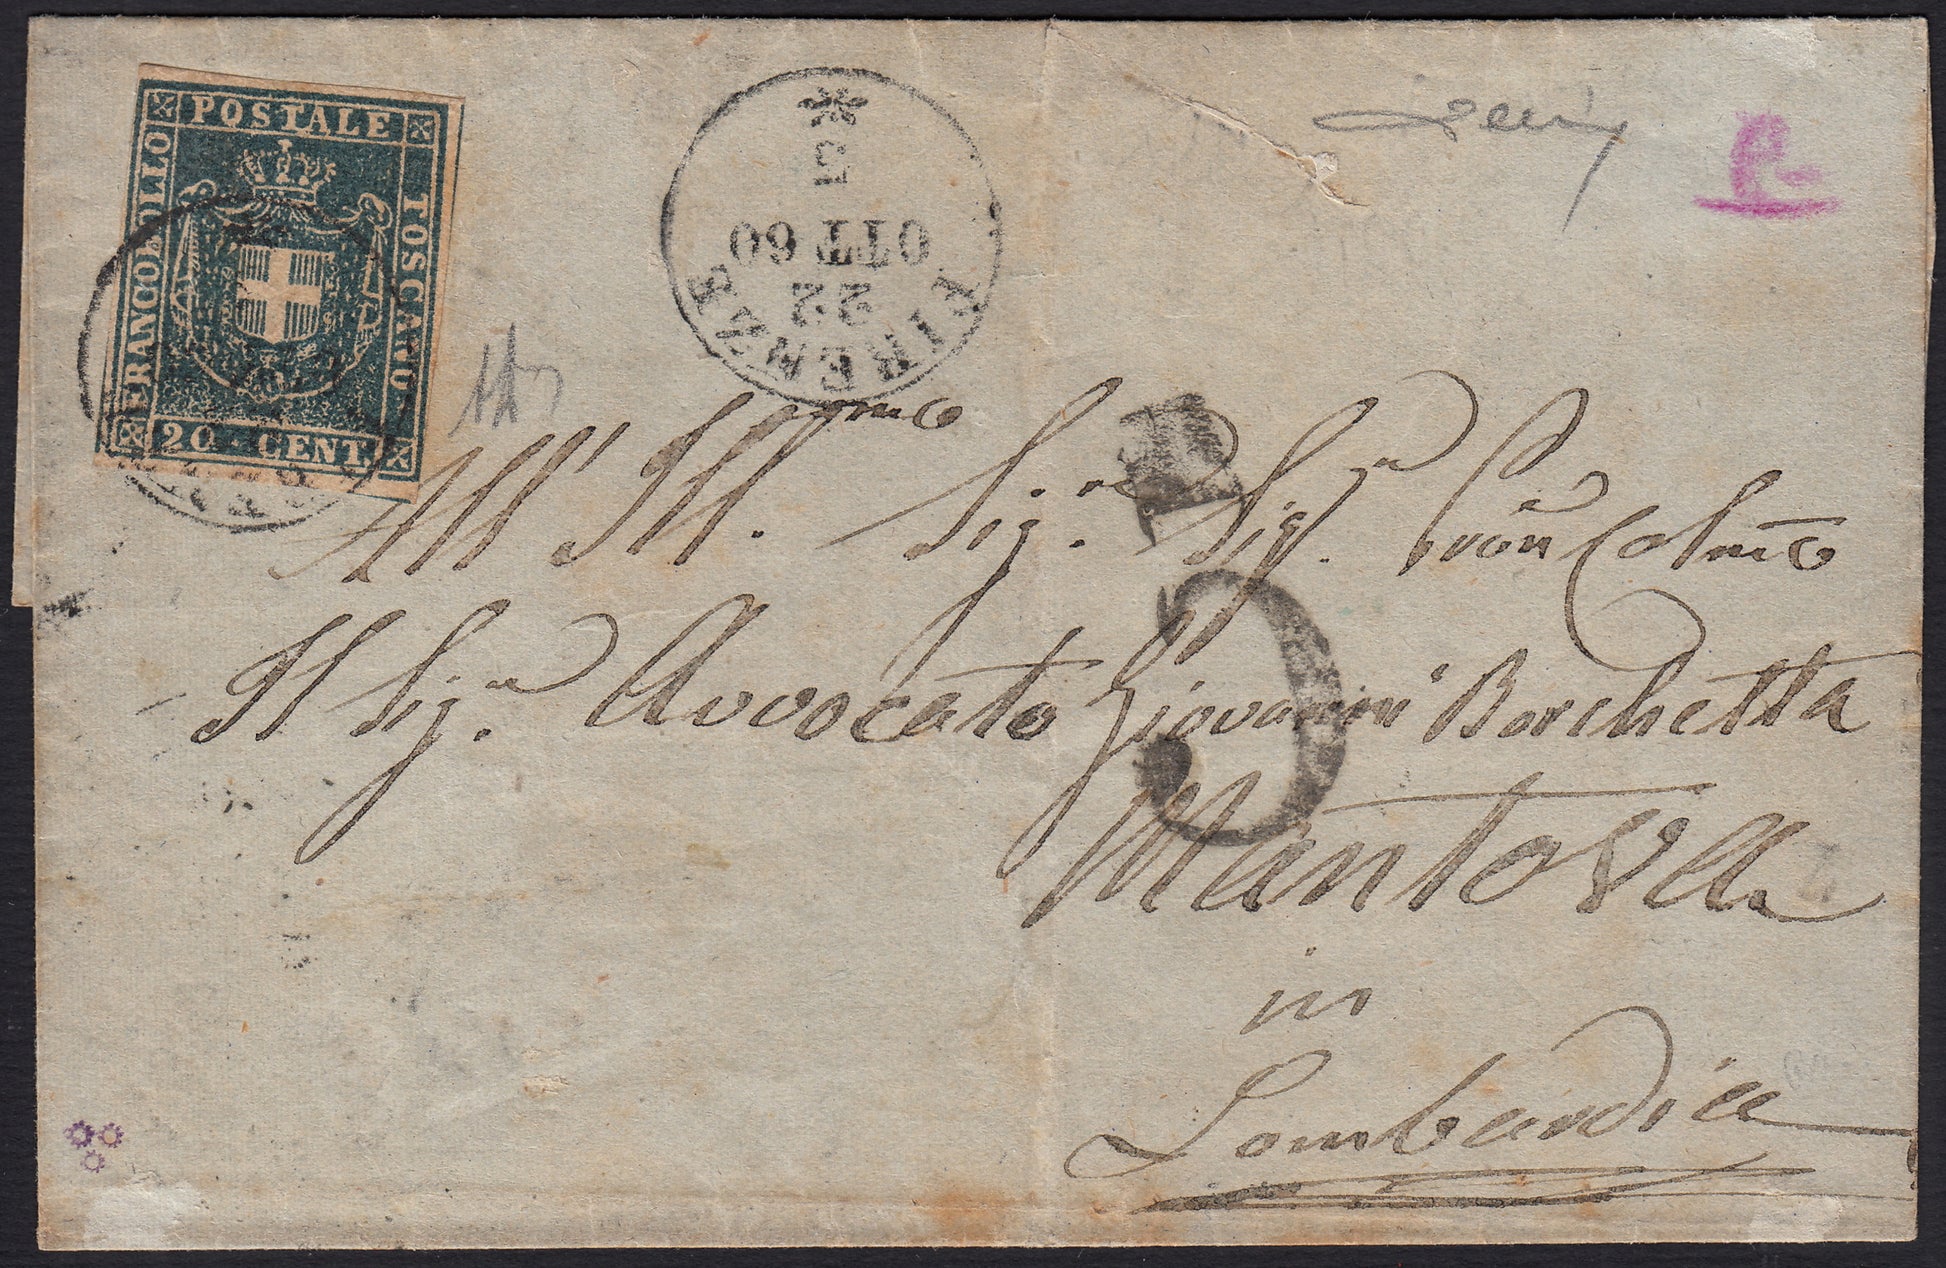 FRANCOBOLLO
POSTALE
TOSCANO
20 CENT.
FIRENZE
22
OTT 60
5
All' Ill.mo Sig.re Sig.re Pron Colmo
Il Sig.re Avvocato Giovanni Borchetta
Mantova
in
Lombardia